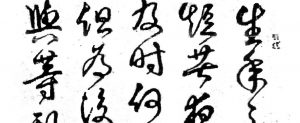 生年不
短苦夜
及時何
但為後
與等期